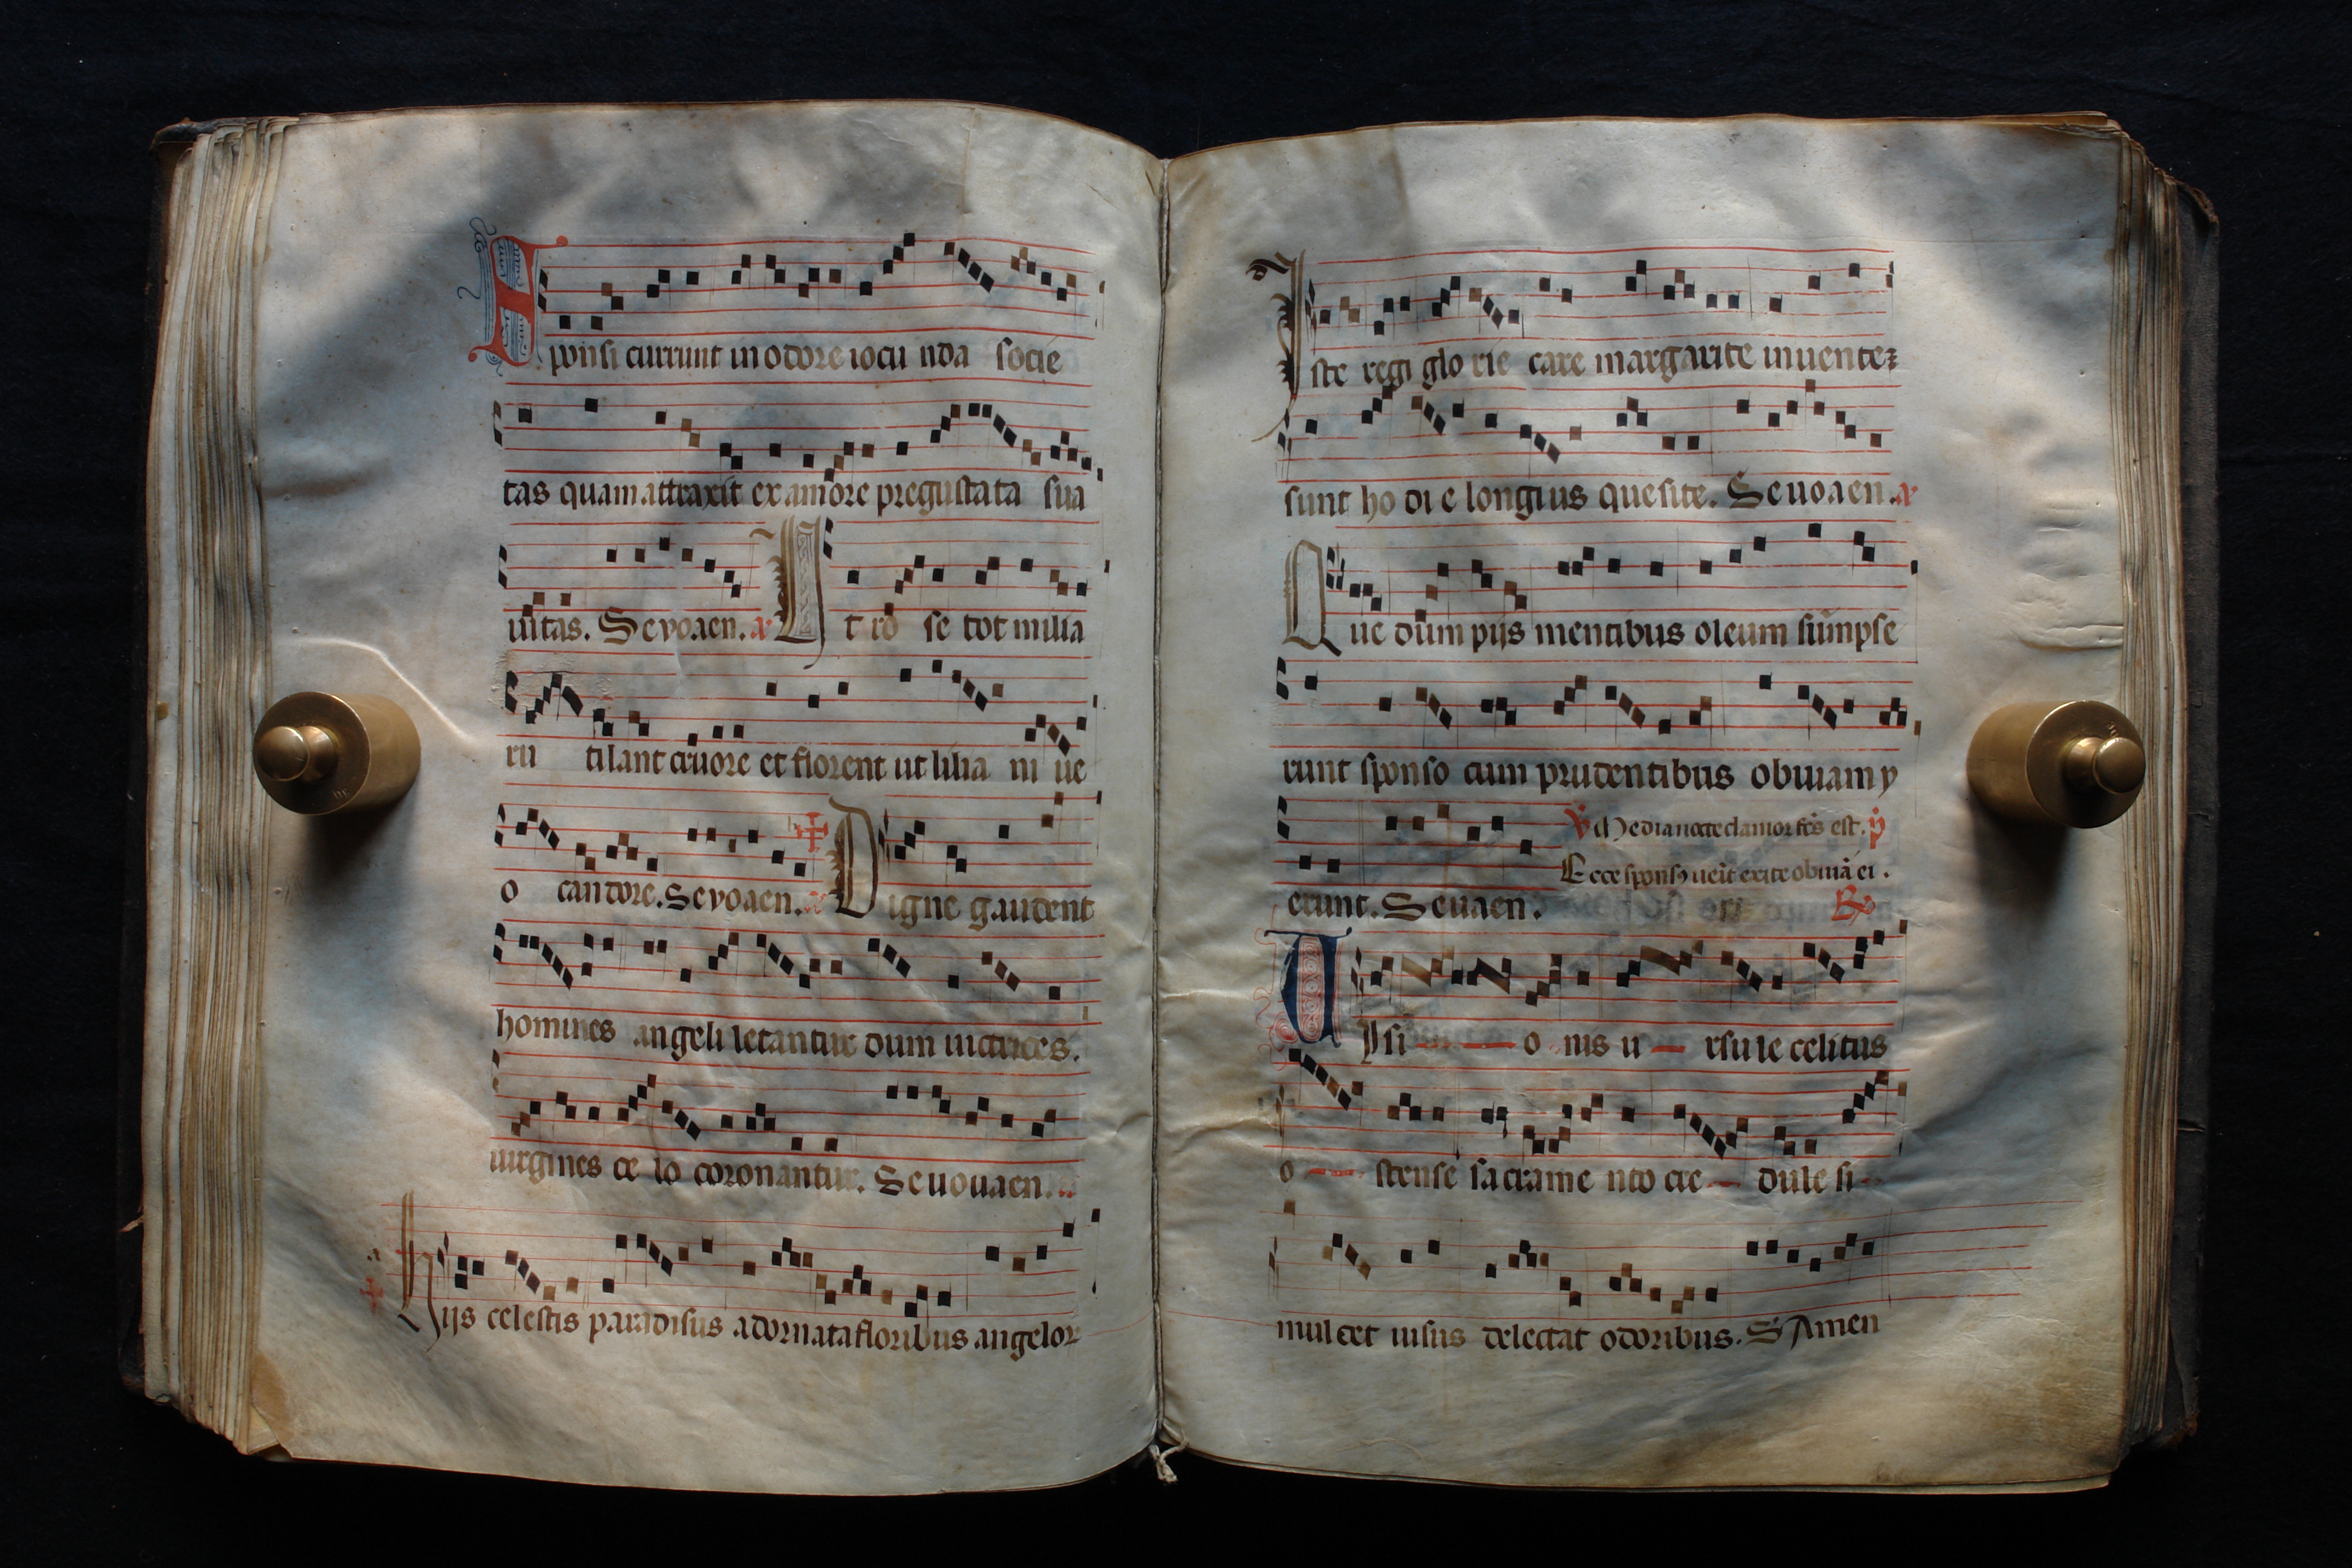 Sponsi currunt in odore iocu nda socie
tas quam attraxit ex amore pregustata sua
uitas. Seuoaen. a It ro se tot milia
ru tilant cruore et florent ut lilia ni ue
o candore. Seuoaen. Digne gaudent
homines angeli letantur dum uictrices.
uirgines ce lo coronantur. Seuouaen.
a Hijs celestis paradisus adornata floribus angelor
Iste regi glo rie care margarite inuente
sunt ho di e longius quesite. Seuoaen. a
Que dum pijs mentibus oleum sumpse
runt sponso cum prudentibus obuiam y
℣ Media nocte clamor fc̄s est. p̄
Ecce sponsꝰ ueīt exite obuiā ei.
erunt. Seuaen. ℞
Uisi o nis u rsule celitus
o stense sacrame nto cre dule si
mul cet uisus delectat odoribus. S Amen